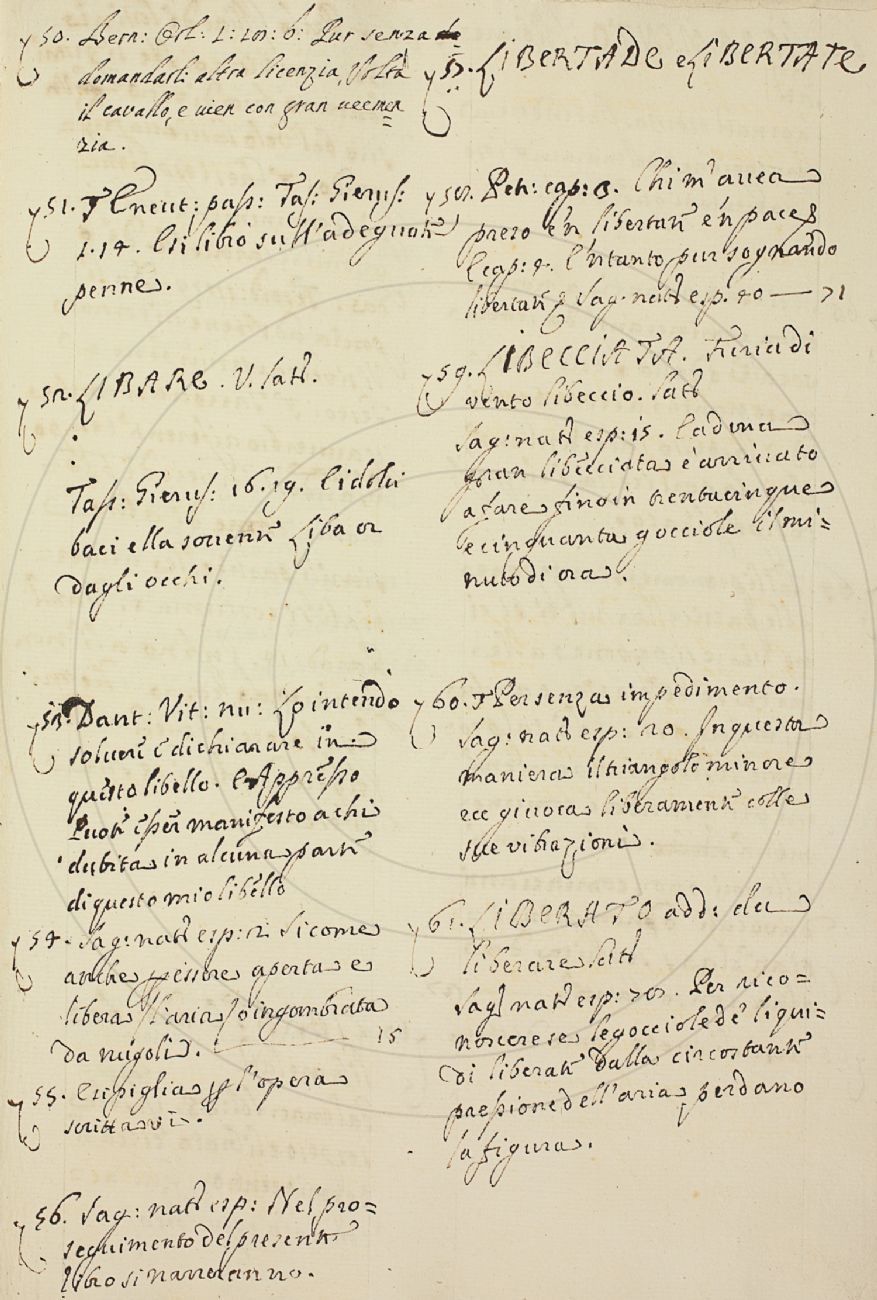 50. Bern: Orl: 1: 20: 6: Pur senza
domandarli altra licenzia, Volta
il cavallo, e vien con gran veemen=
zia.
51. T Eneut: pass: Tass: Gierus:
1. 14. E si librò su l'adeguate
penne.
52. LIBARE. V. Lat:
Tass: Gierus: 16. 19. E i dolci
baci ella sovente Liba or
dagli occhi.
53. Dant: Vit: nu: Lo intendo
solvere e dichiarare in
questo libello. E Appresso
Puote esser manifesto a chi
dubita in alcuna parte
di questo mio libello
54. Sag: nat: esp: 12 Sicome
anche p essere aperta e
libera (l'aria) o ingombrata
da nugoli. — 15
55. E si piglia p l'opera
scrittavi.
56. Sag: nat: esp: Nel pro=
seguimento del presente
libro si narreranno.
57. LIBERTADE e LIBERTATE
58. Petr: cap: 3. Chi m'avea
preso e 'n libertate e 'n pace
E cap: 4. E 'ntanto pur sognando
libertate Sag: nat: esp. 40 — 71
59. LIBECCIATA. Furia di
vento libeccio. Lat:
Sag: nat: esp: 15. E ad una
gran libecciata è arrivato
a fare fino in trentacinque
e cinquanta gocciole il mi=
nuto di ora.
60. T Per senza impedimento.
Sag: nat: esp: 20. In questa
maniera il triangolo minore
ec giuoca liberamente colle
sue vibrazioni.
61. LIBERATO add: da
liberare Lat:
Sag: nat: esp: Per rico=
noscere se le gocciole de' liqui=
di liberate dalla circostante
pressione dell'aria, perdano
la figura.